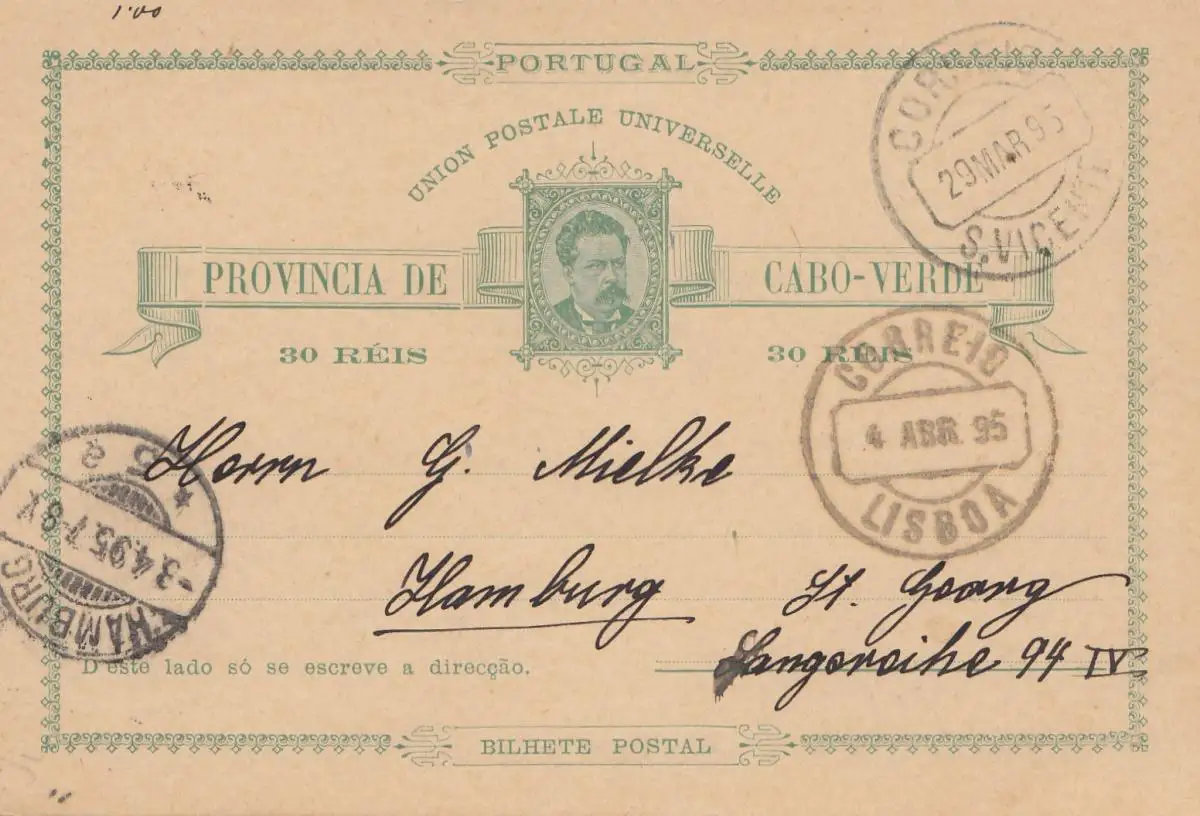 1.00
PORTUGAL
UNION POSTALE UNIVERSELLE
PROVINCIA DE CABO-VERDE
30 RÉIS 30 RÉIS
CORREIO
29 MAR 95
S. VICENTE
CORREIO
4 ABR. 95
LISBOA
Herrn G. Mielke
Hamburg St. Georg
Langereihe 94 IV
* 5 2
HAMBURG
D'este lado só se escreve a direcção.
BILHETE POSTAL